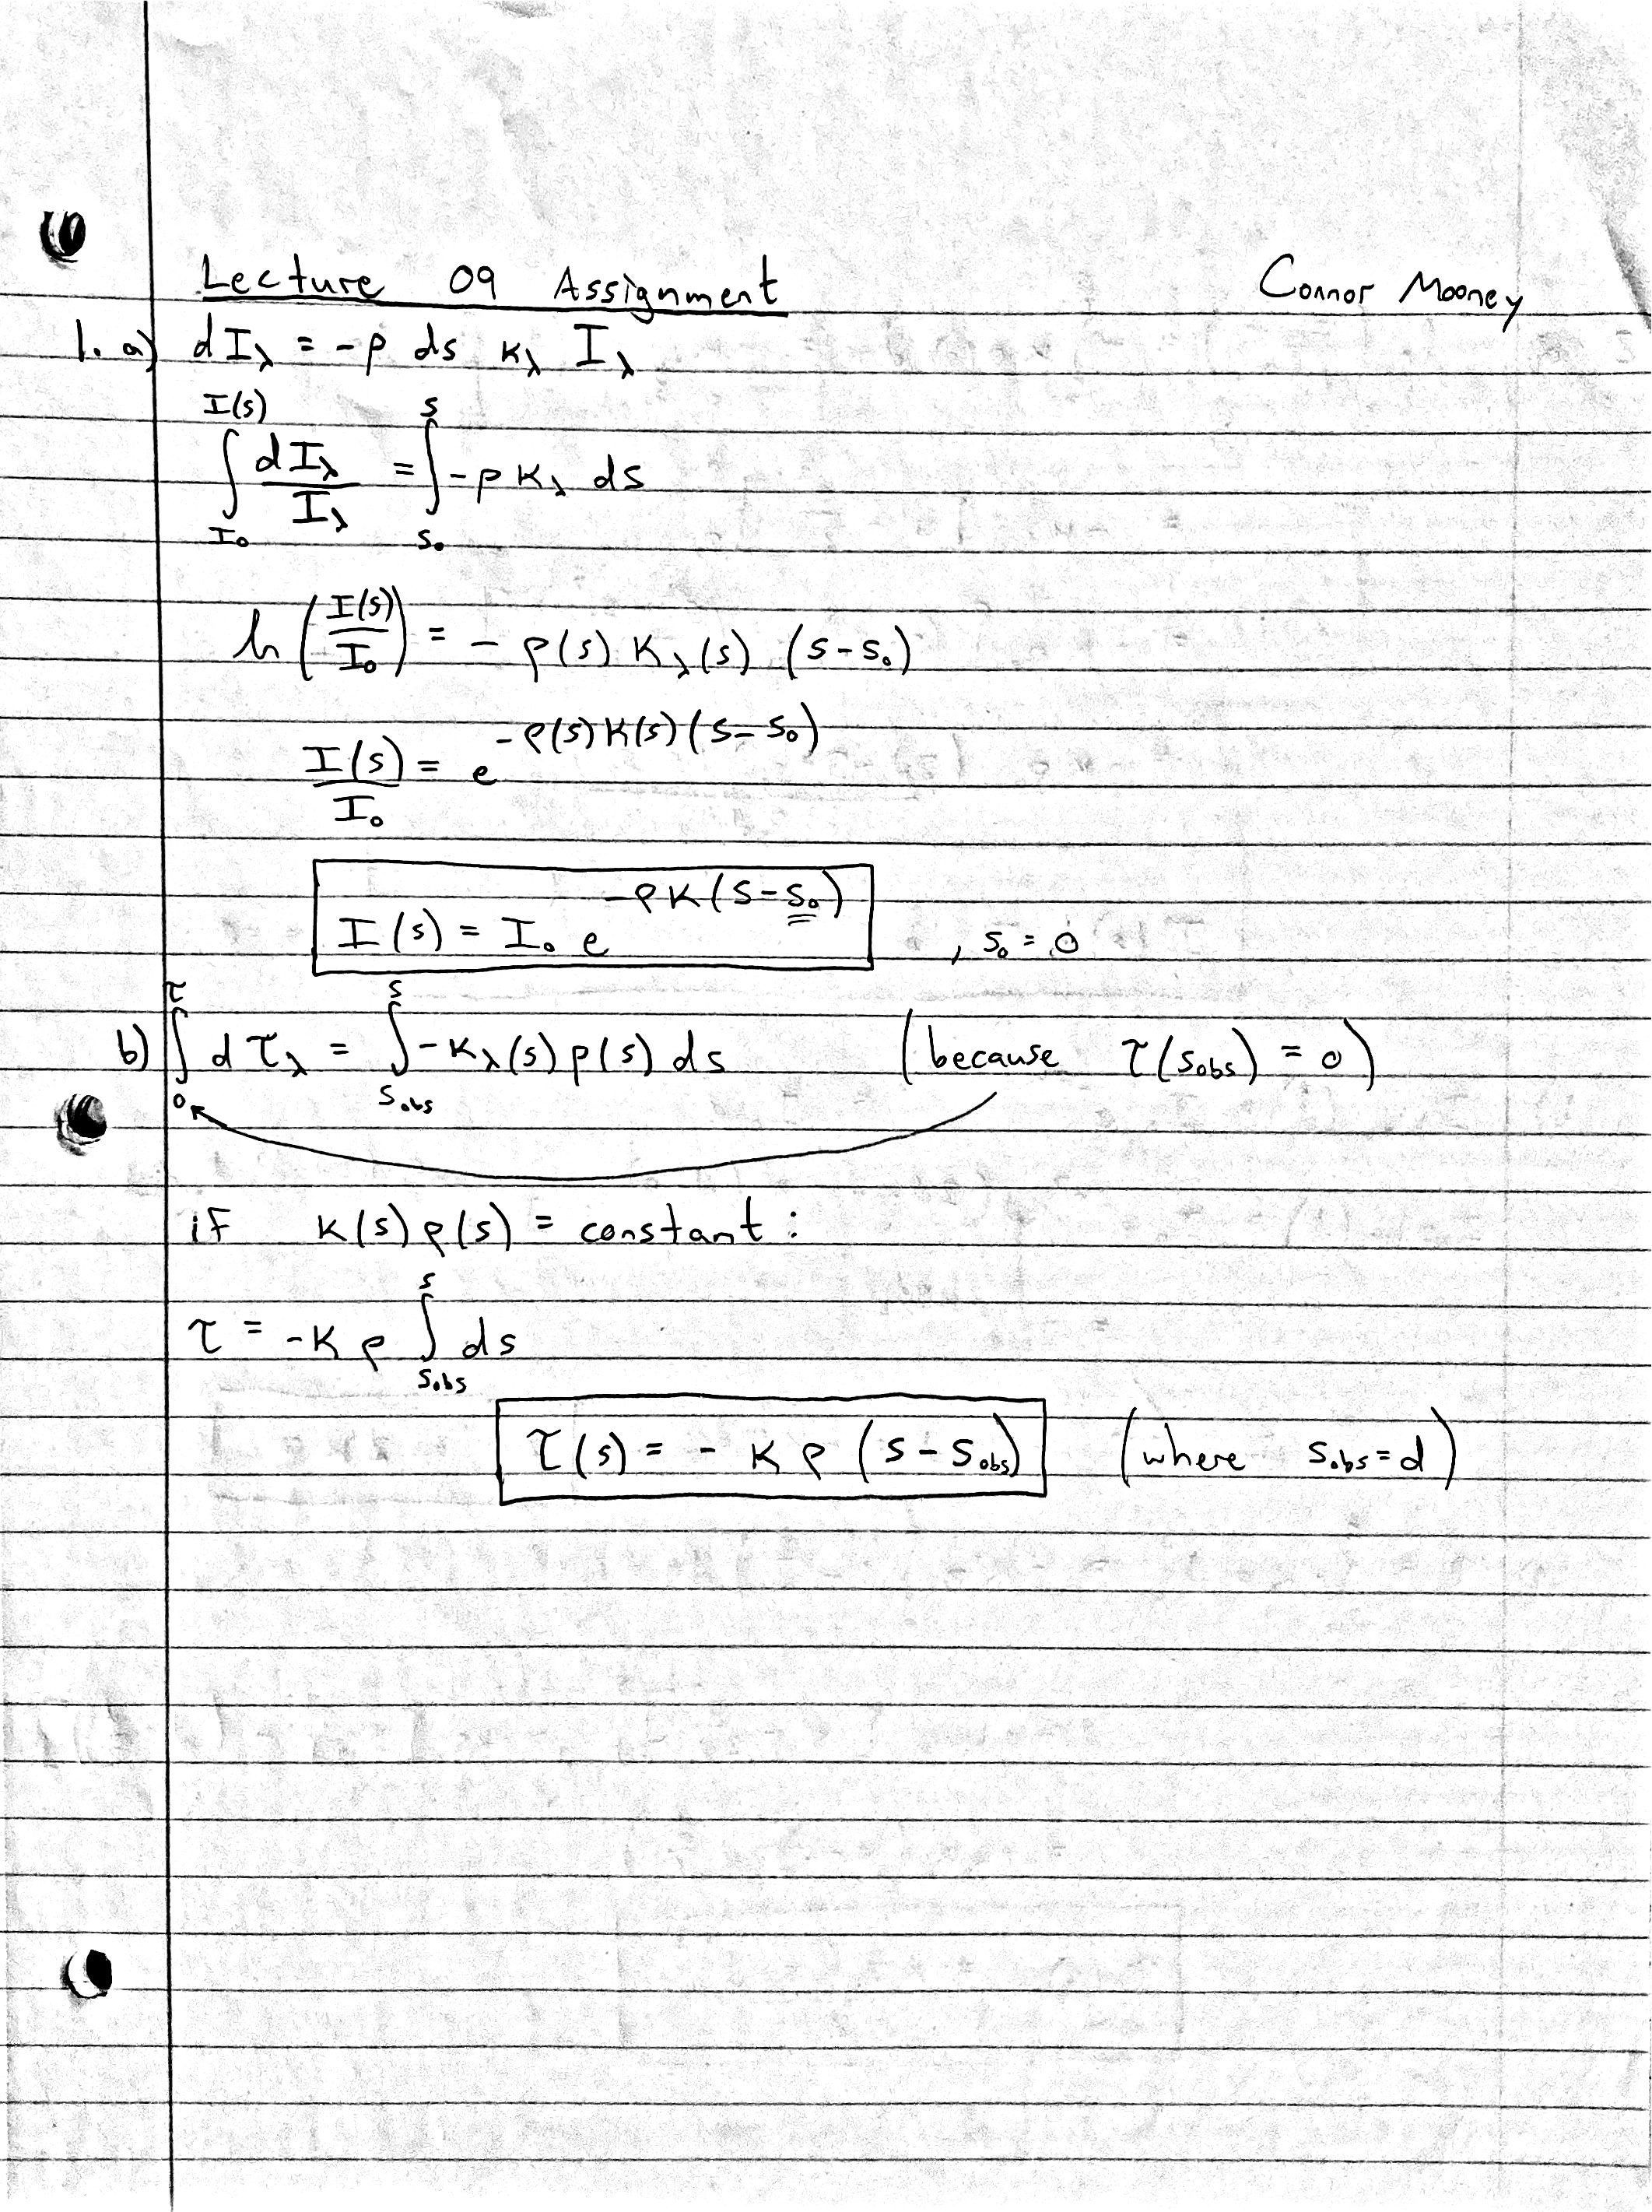 Lecture 09 Assignment Connor Mooney
1. a) dI_λ = -ρ ds κ_λ I_λ
∫_{I₀}^{I(s)} dI_λ / I_λ = ∫_{s₀}^{s} -ρ κ_λ ds
ln (I(s) / I₀) = - ρ(s) κ_λ(s) (s-s₀)
I(s) / I₀ = e^{-ρ(s) κ(s) (s-s₀)}
I(s) = I₀ e^{-ρκ(s-s₀)} , s₀ = 0
b) ∫_{0}^{τ} dτ_λ = ∫_{s_obs}^{s} -κ_λ(s) ρ(s) ds (because τ(s_obs) = 0)
if κ(s) ρ(s) = constant :
τ = -κ ρ ∫_{s_obs}^{s} ds
τ(s) = - κ ρ (s - s_obs) (where s_obs = d)